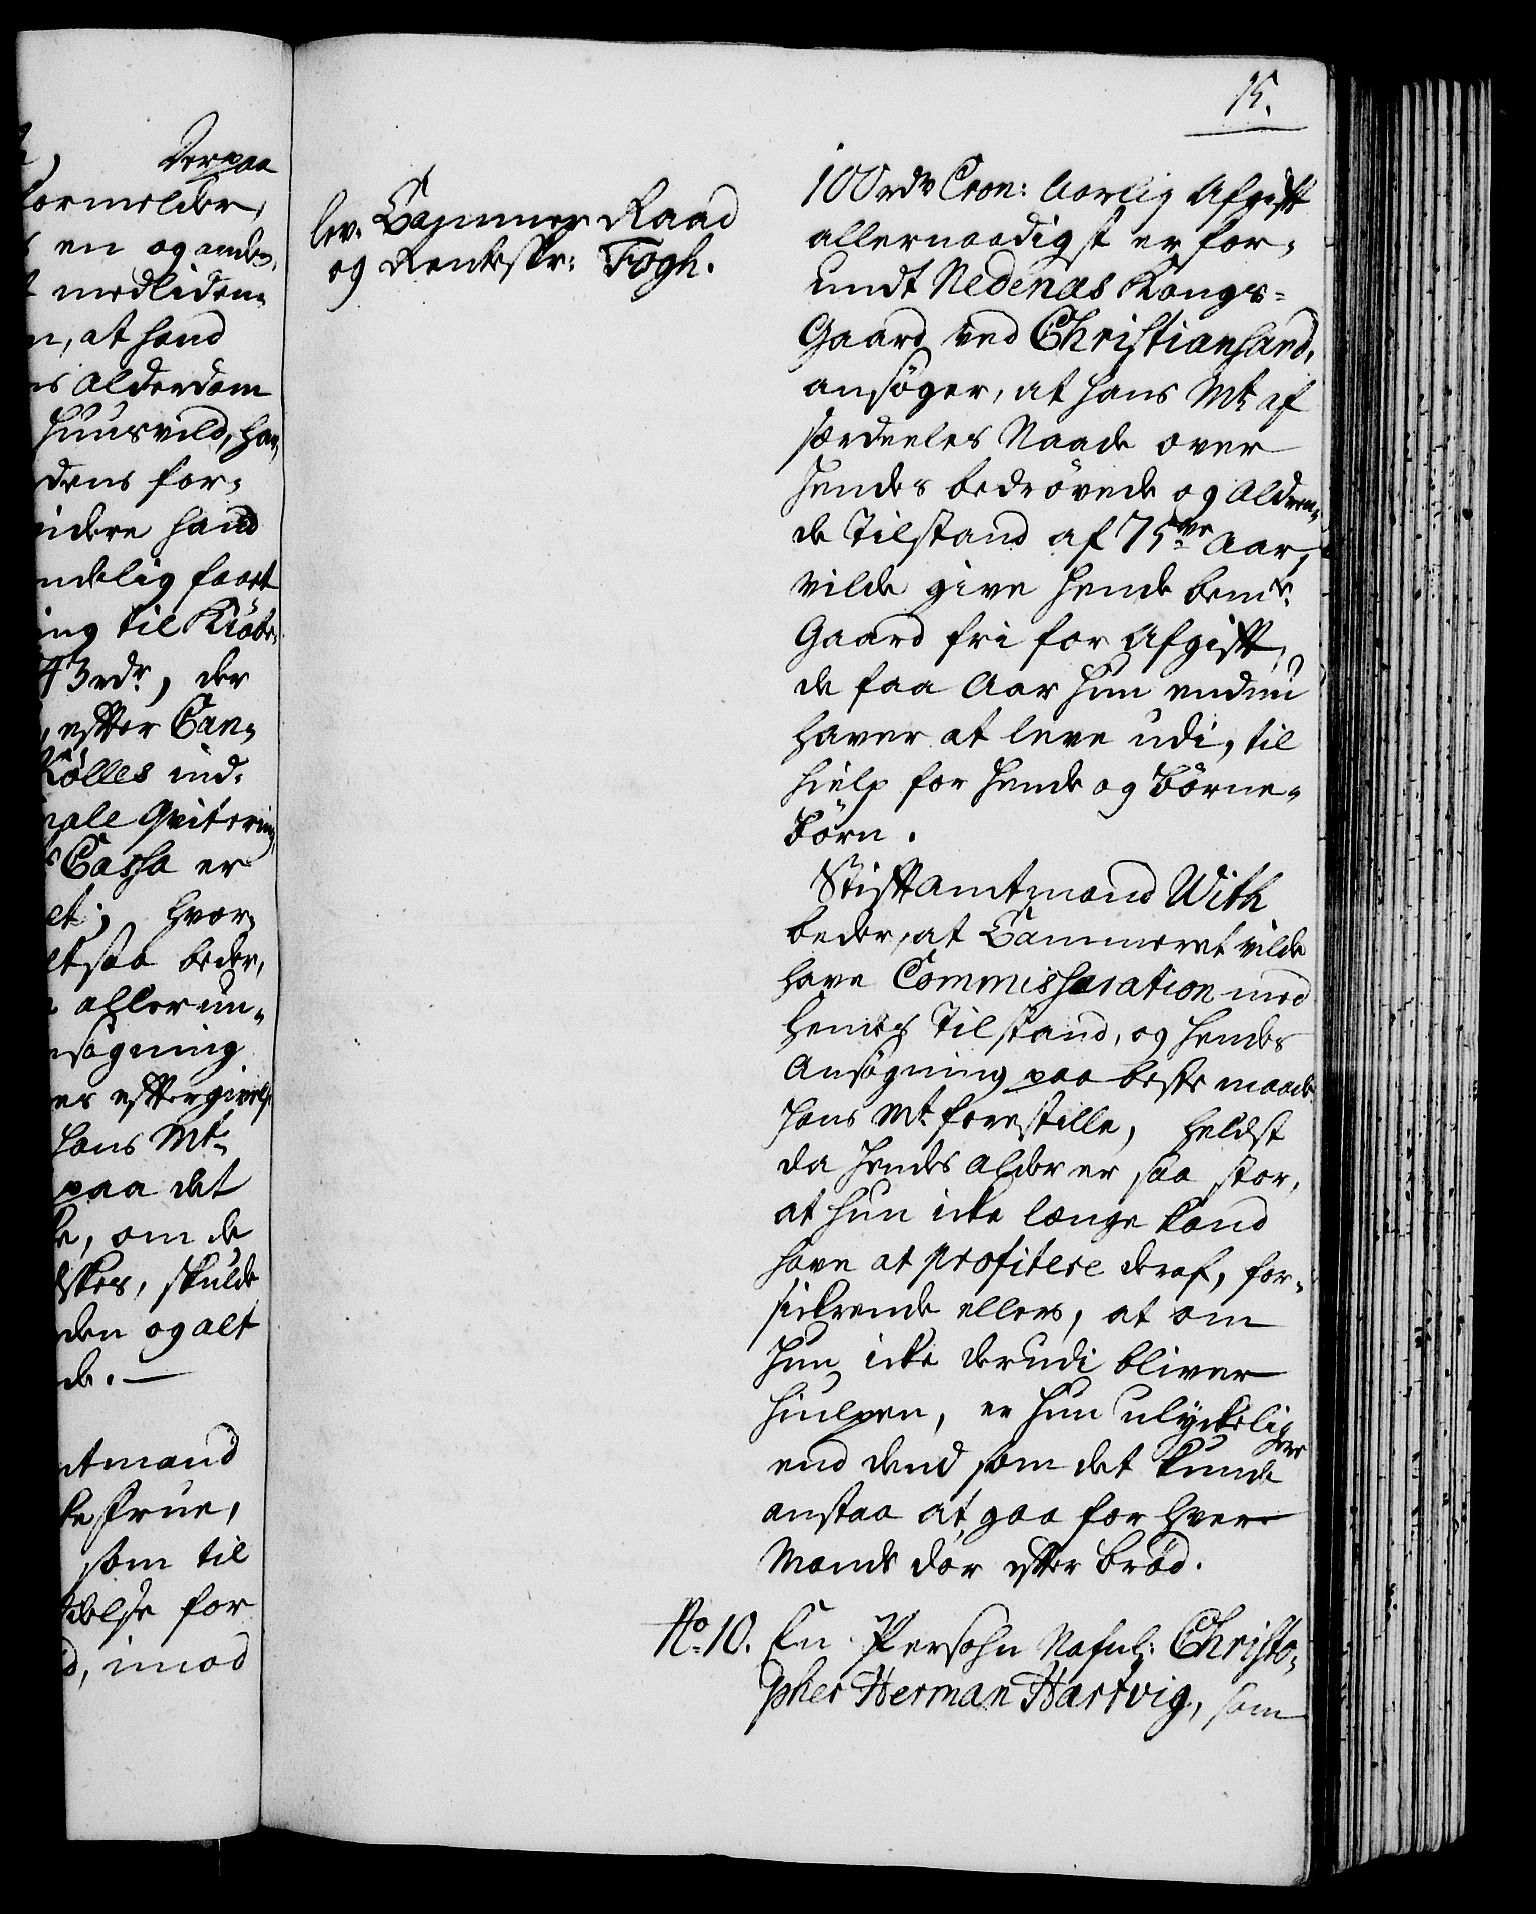 Derpaa
formelder,
en og anden
medliden-
n, at hand
ns Alderdom
huusvild, har
dens for-
idere hand
ndelig faaet
ing til Kiöbe-
43 rdr, der
, efter Can-
Kölles ind-
nale Qvitering
s Cassa er
et; hvor-
altsaa beder,
allerun-
nsøgning
es eftergivelse
Hans Mt
paa det
ke, om de
skes, skulde
den og alt
de. —
ntmand
ke Frue,
som til
delse for
d, imod
15.
lev. Cammer Raad
og Renteskr: Fogh.
100 rdr Cron: Aarlig Afgift
allernaadigst er for-
undt Nedenæs Kongs-
Gaard ved Christiansand,
ansøger, at Hans Mt af
særdeeles Naade over
hendes bedrøvede og Aldren-
de Tilstand af 75ve Aar,
vilde give hende bemte
Gaard fri for Afgift,
de faa Aar hun endnu
haver at leve udi, til
hielp for hende og Börne-
börn.
Stiftamtmand With
beder, at Cammeret vilde
have Commisseration med
hendes Tilstand, og hendes
Ansøgning paa beste maade
Hans Mt forestille, heldst
da hendes alder er saa stor,
at hun icke længe kand
have at profitere deraf, for-
sickrende ellers, at om
hun icke derudi bliver
hiulpen, er hun ulyckelig
ere
end dend som det kunde
anstaa at gaa for hver
Mands dör efter bröd.
No. 10. En Persohn Nafnl: Christo-
pher Herman Hartvig, som